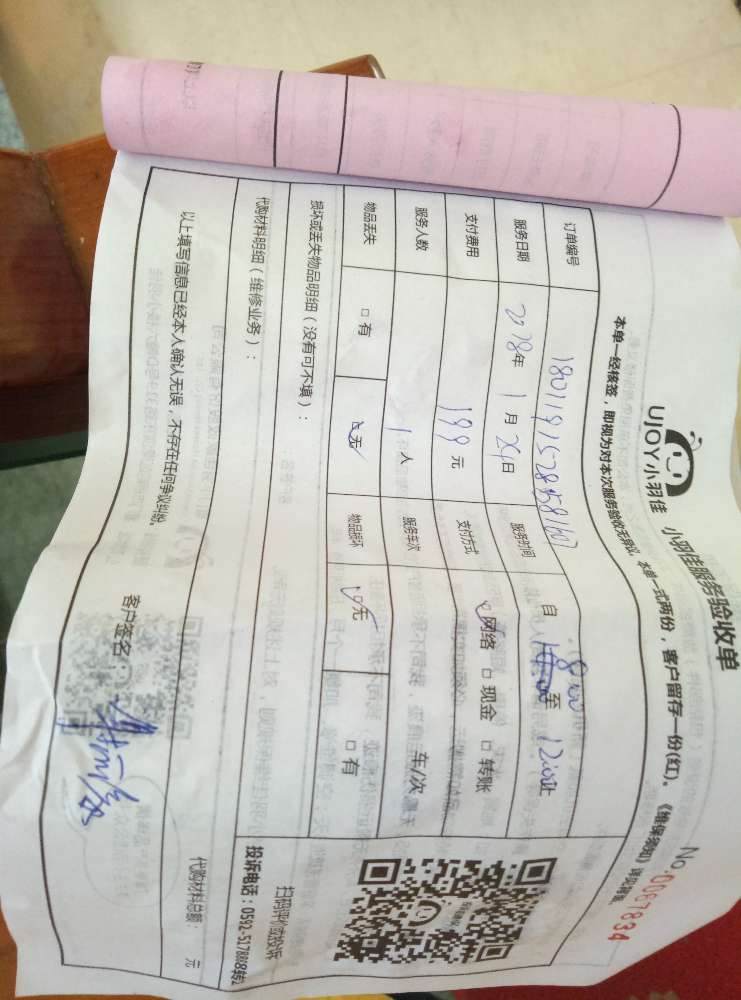 UJOY小羽佳 小羽佳服务验收单
No.0087834
本单一经核签,即视为对本次服务验收无异议。本单一式两份,客户留存一份(红)。《维保须知》详见背面。
订单编号
服务日期 2018年 1月 24日 服务时间 自 8:00 至 12:00止
支付费用 199 元 支付方式 网络 □ 现金 □ 转账
服务人数 1 人 服务车次 车/次
物品丢失 □ 有 □ 无 物品损坏 □ 无 □ 有
损坏或丢失物品明细(没有可不填):
扫码评价或投诉
代购材料明细(维修业务):
投诉电话:0592-5178868转2
代购材料总额: 元
以上填写信息已经本人确认无误,不存在任何争议纠纷。
客户签名: